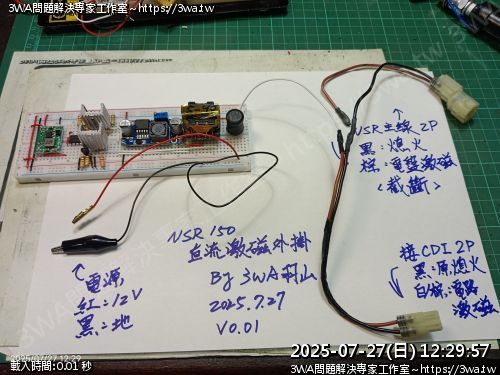 3WA問題解決專家工作室~https://3wa.tw
3WA問題解決專家工作室~https://3wa.tw
NSR主線2P
黑:熄火
棕:電盤激磁
(截斷)
接CDI 2P
黑:原熄火
白棕:電路
激磁
NSR 150
直流激磁外掛
By 3WA羽山
2025.7.27
V0.01
電源
紅:12V
黑:地
2025-07-27 12:29
載入時間:0.01 秒
2025-07-27(日) 12:29:57
3WA問題解決專家工作室~https://3wa.tw